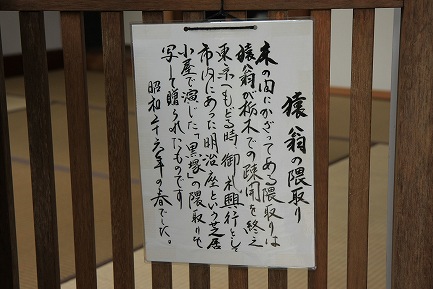 猿翁の隈取り
木の内にかざってある隈取りは
猿翁が栃木での疎開を終え
東京へもどる時、御礼興行として
市内にあった明治座という芝居
小屋で演じた「黒塚」の隈取りを
写して贈られたものです
昭和二十六年の春でした。